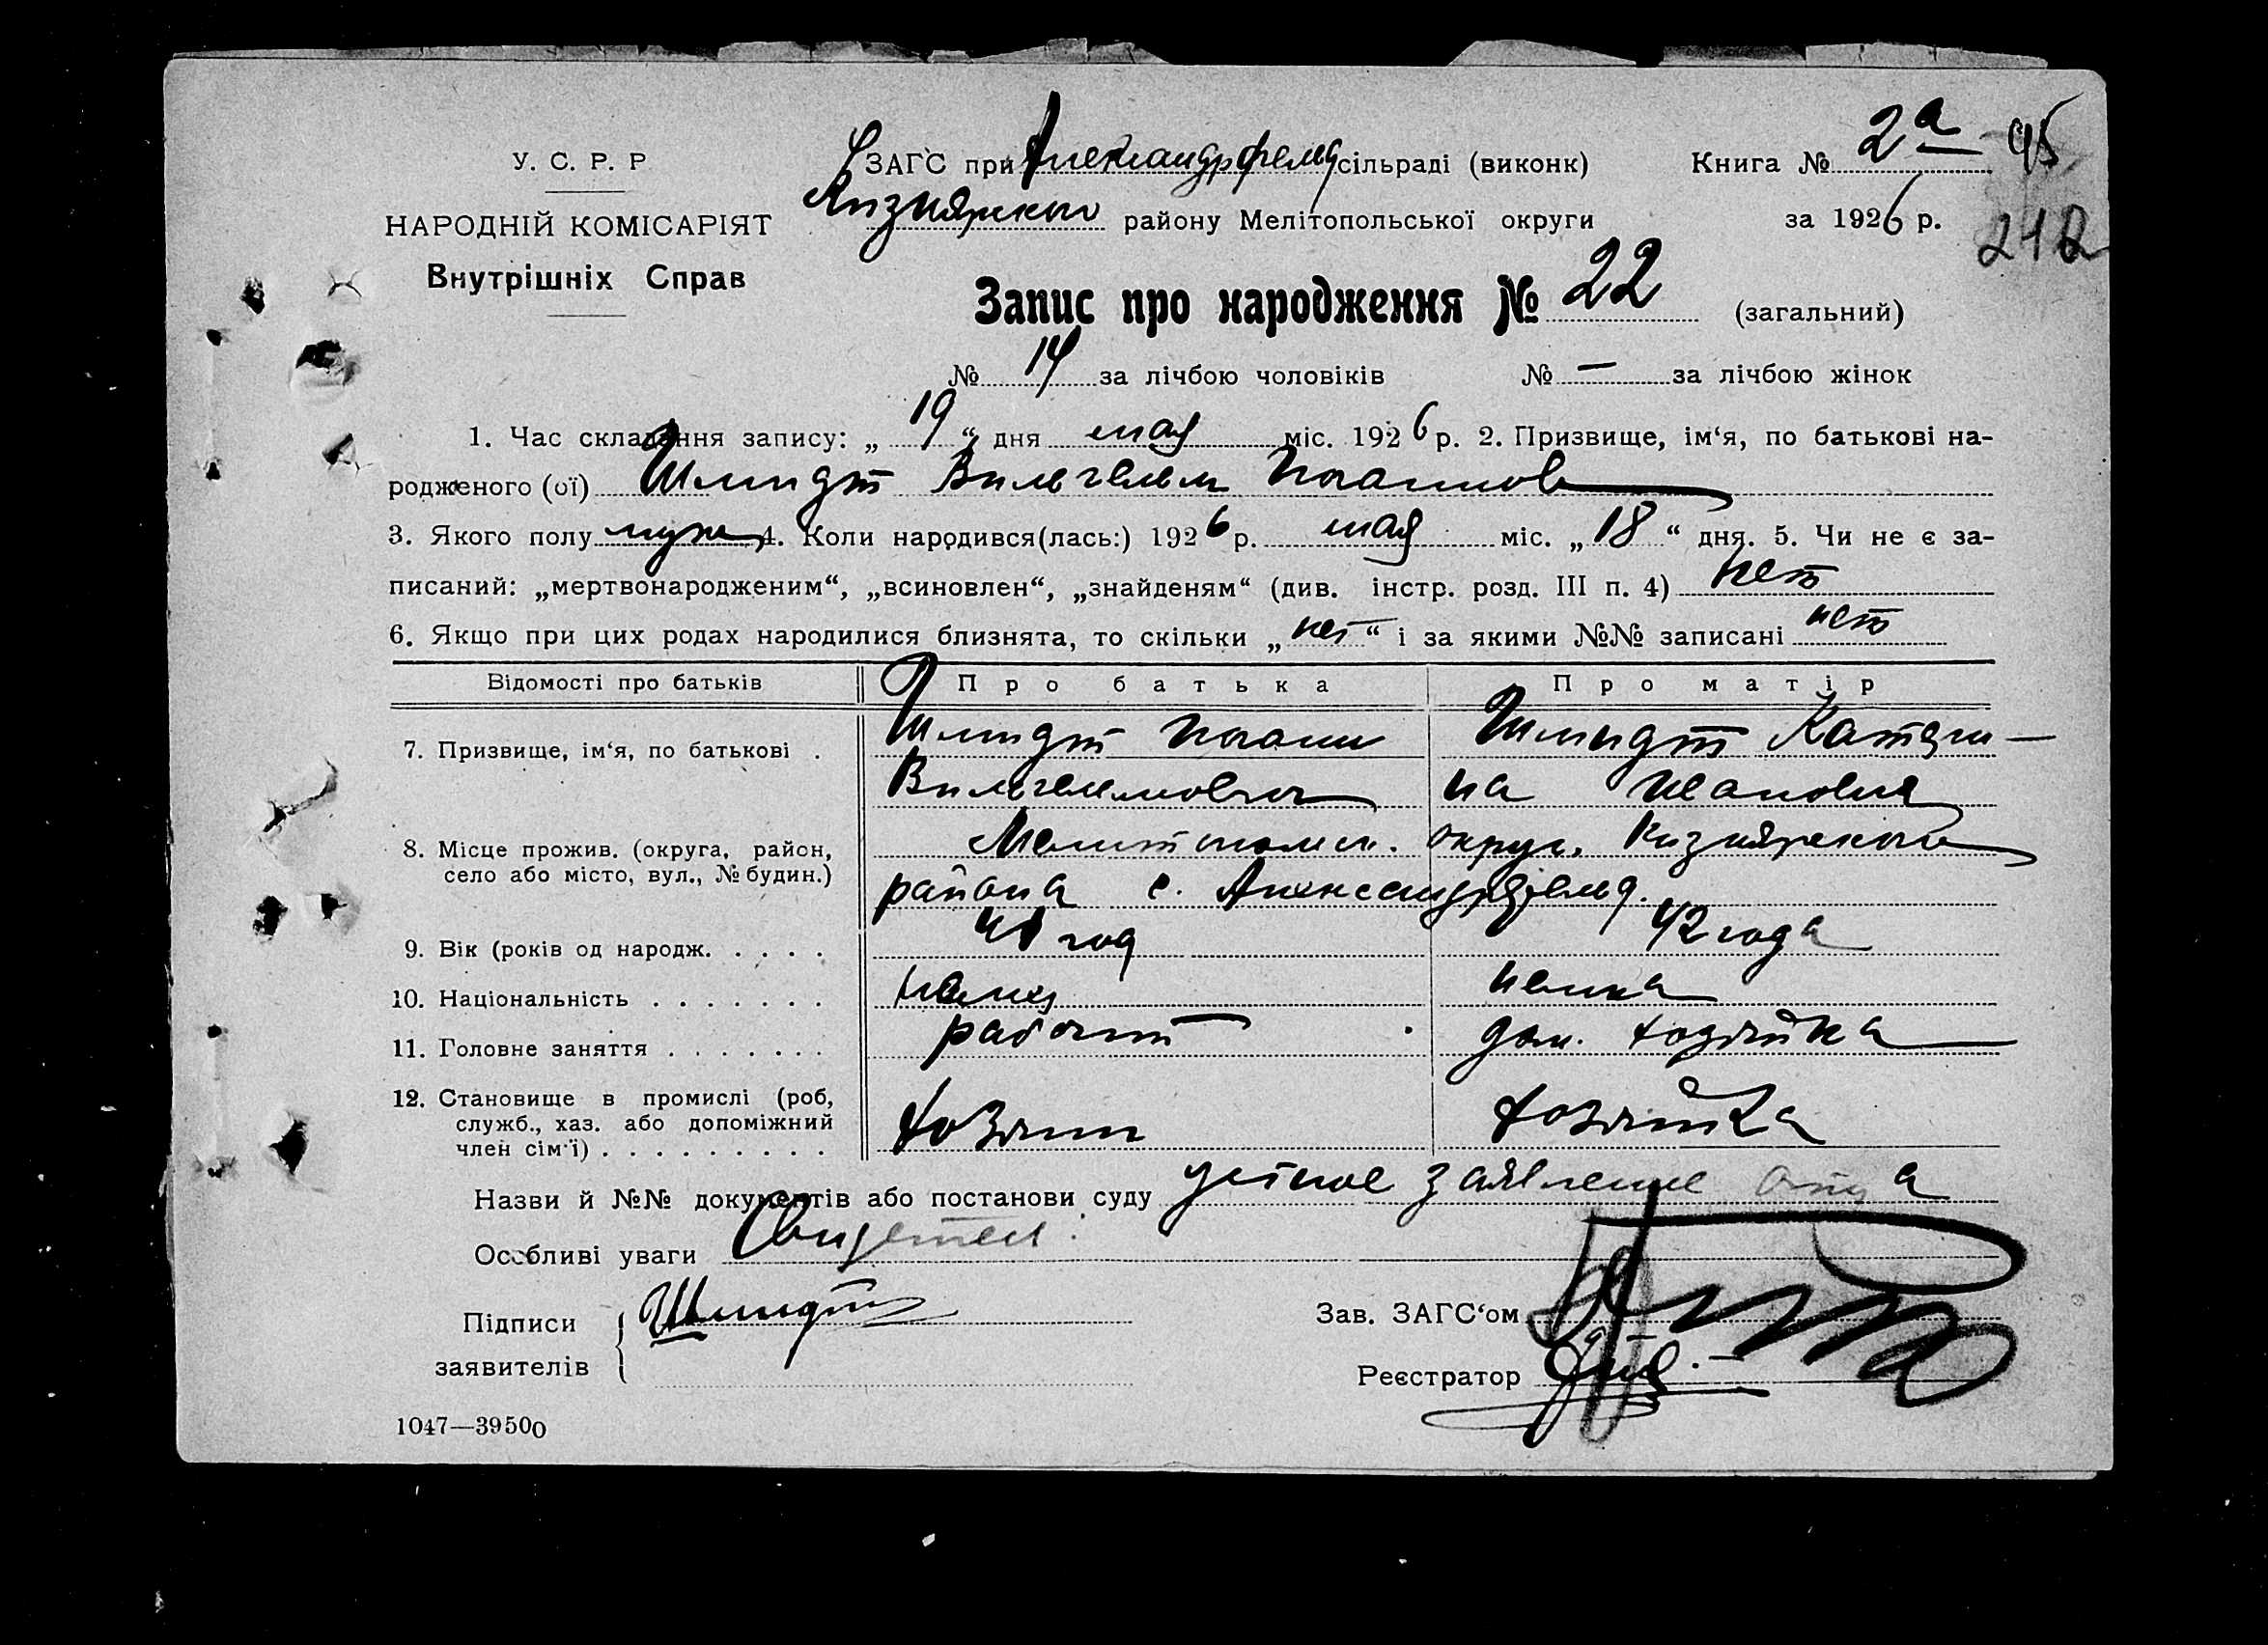 У. С. Р. Р
НАРОДНІЙ КОМІСАРІЯТ
Внутрішніх Справ
ЗАГС при Александрфельд сільраді (виконк)
Книга № 2а 95
Кизиярского району Мелітопольської округи
за 1926 р.
212
Запис про народження № 22 (загальний)
№ 14 за лічбою чоловіків № — за лічбою жінок
1. Час складання запису: „ 19 “ дня мая міс. 1926 р. 2. Призвище, ім‘я, по батькові на-
родженого (ої) Шмидт Вильгельм Иоаннов
3. Якого полу муж 4. Коли народився(лась:) 1926 р. мая міс. „ 18 “ дня. 5. Чи не є за-
писаний: „мертвонародженим“, „всиновлен“, „знайденям“ (див. інстр. розд. III п. 4) нет
6. Якщо при цих родах народилися близнята, то скільки „ нет “ і за якими №№ записані нет
Відомості про батьків Про батька Про матір
7. Призвище, ім‘я, по батькові . Шмидт Иоанн Шмидт Катари-
Вильгельмович на Ивановна
8. Місце прожив. (округа, район, Мелитопольск. округ. Кизиярского
село або місто, вул., № будин.) района с. Александрфельд.
9. Вік (років од народж. . . . . 41 год 42 года
10. Національність . . . . . . . немец немка
11. Головне заняття . . . . . . . дом. хозяйка
12. Становище в промислі (роб,
служб., хаз. або допоміжний хозяин хозяйка
член сім‘ї) . . . . . . . . .
Назви й №№ документів або постанови суду устное заявление отца
Особливі уваги
Підписи Шмидт
заявителів
Зав. ЗАГС‘ом
Реєстратор
1047—39500